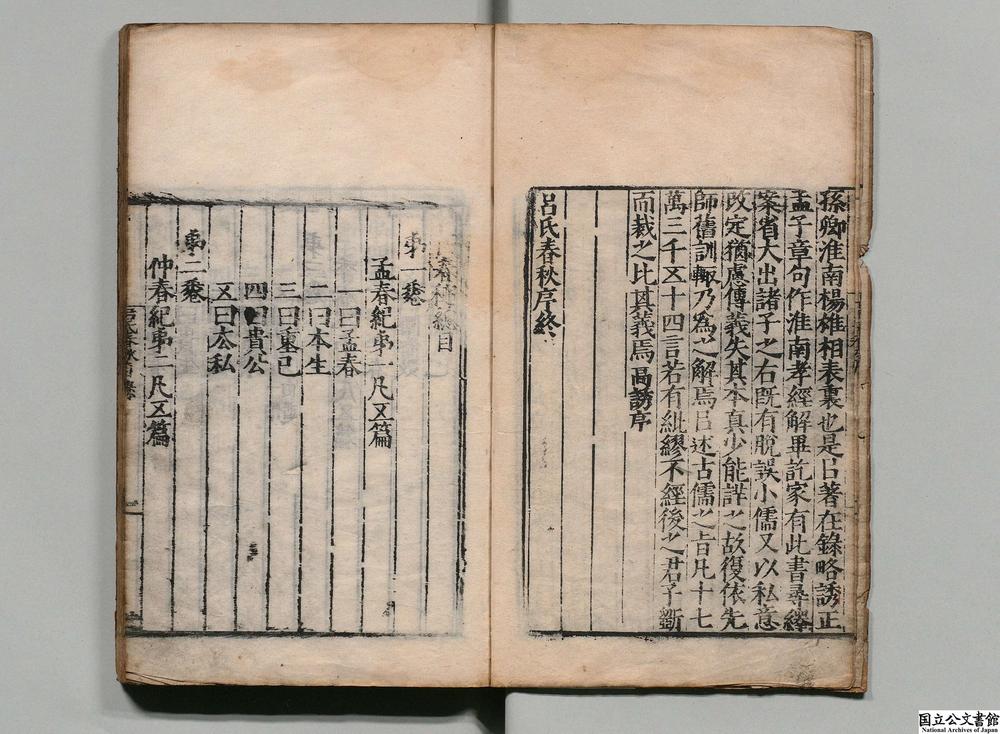 孫卿淮南楊雄相表裏也是以著在錄略誘正
孟子章句作淮南孝經解畢訖家有此書尋繹
案省大出諸子之右既有脫誤小儒又以私意
改定猶慮傳義失其本真少能詳之故復依先
師舊訓輒乃為之解焉以述古儒之旨凡十七
萬三千五十四言若有紕繆不經後之君子斷
而裁之比其義焉高誘序
呂氏春秋序終
春秋總目
第一卷
孟春紀第一凡五篇
一曰孟春
二曰本生
三曰重己
四曰貴公
五曰去私
第二卷
仲春紀第二凡五篇
国立公文書館
National Archives of Japan